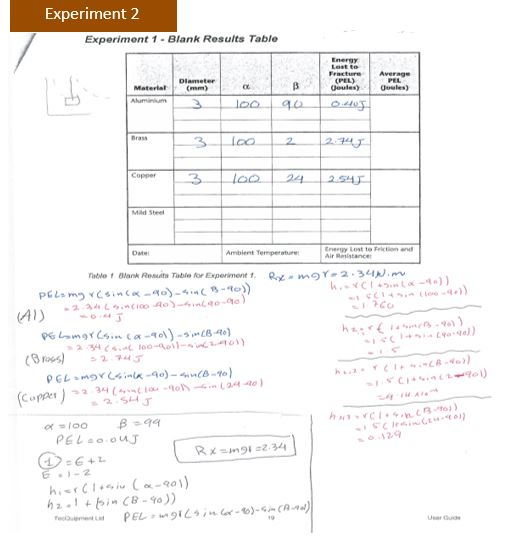 Experiment 2
Experiment 1 - Blank Results Table
Material Diameter (mm) α β Energy Lost to Fracture (PEL) (Joules) Average PEL (Joules)
Aluminium 3 100 90 0.40J
Brass 3 100 2 2.74J
Copper 3 100 24 2.54J
Mild Steel
Date: Ambient Temperature: Energy Lost to Friction and Air Resistance:
Table 1 Blank Results Table for Experiment 1. Rx = mgr = 2.34 N.m
PEL = mgr (sin(α-90) - sin(β-90))
= 2.34 (sin(100-90) - sin(90-90)
(Al) = 0.4 J
PEL = mgr (sin(α-90) - sin(β-90)
= 2.34 (sin(100-90)) - sin(2-90))
(Brass) = 2.74J
PEL = mgr (sin(α-90) - sin(β-90)
= 2.34 (sin(100-90)) - sin(24-90)
(Copper) = 2.54J
h₁ = r(1+sin(α-90))
= 1.5(1+sin(100-90))
= 1.760
h₂ = r(1+sin(β-90))
= 1.5(1+sin(90-90))
= 1.5
r(1+sin(β-90))
= 1.5(1+sin(2-90))
r(1+sin(β-90))
= 1.5(1+sin(24-90))
= 0.129
α = 100 β = 99
PEL = 0.04J
Rx = mgr = 2.34
1 = 6+2
h₁ = r(1+sin(α-90))
h₂ = 1+(sin(β-90))
PEL = mgr(sin(α-90)-sin(β-90)
TecQuipment Ltd 19 User Guide